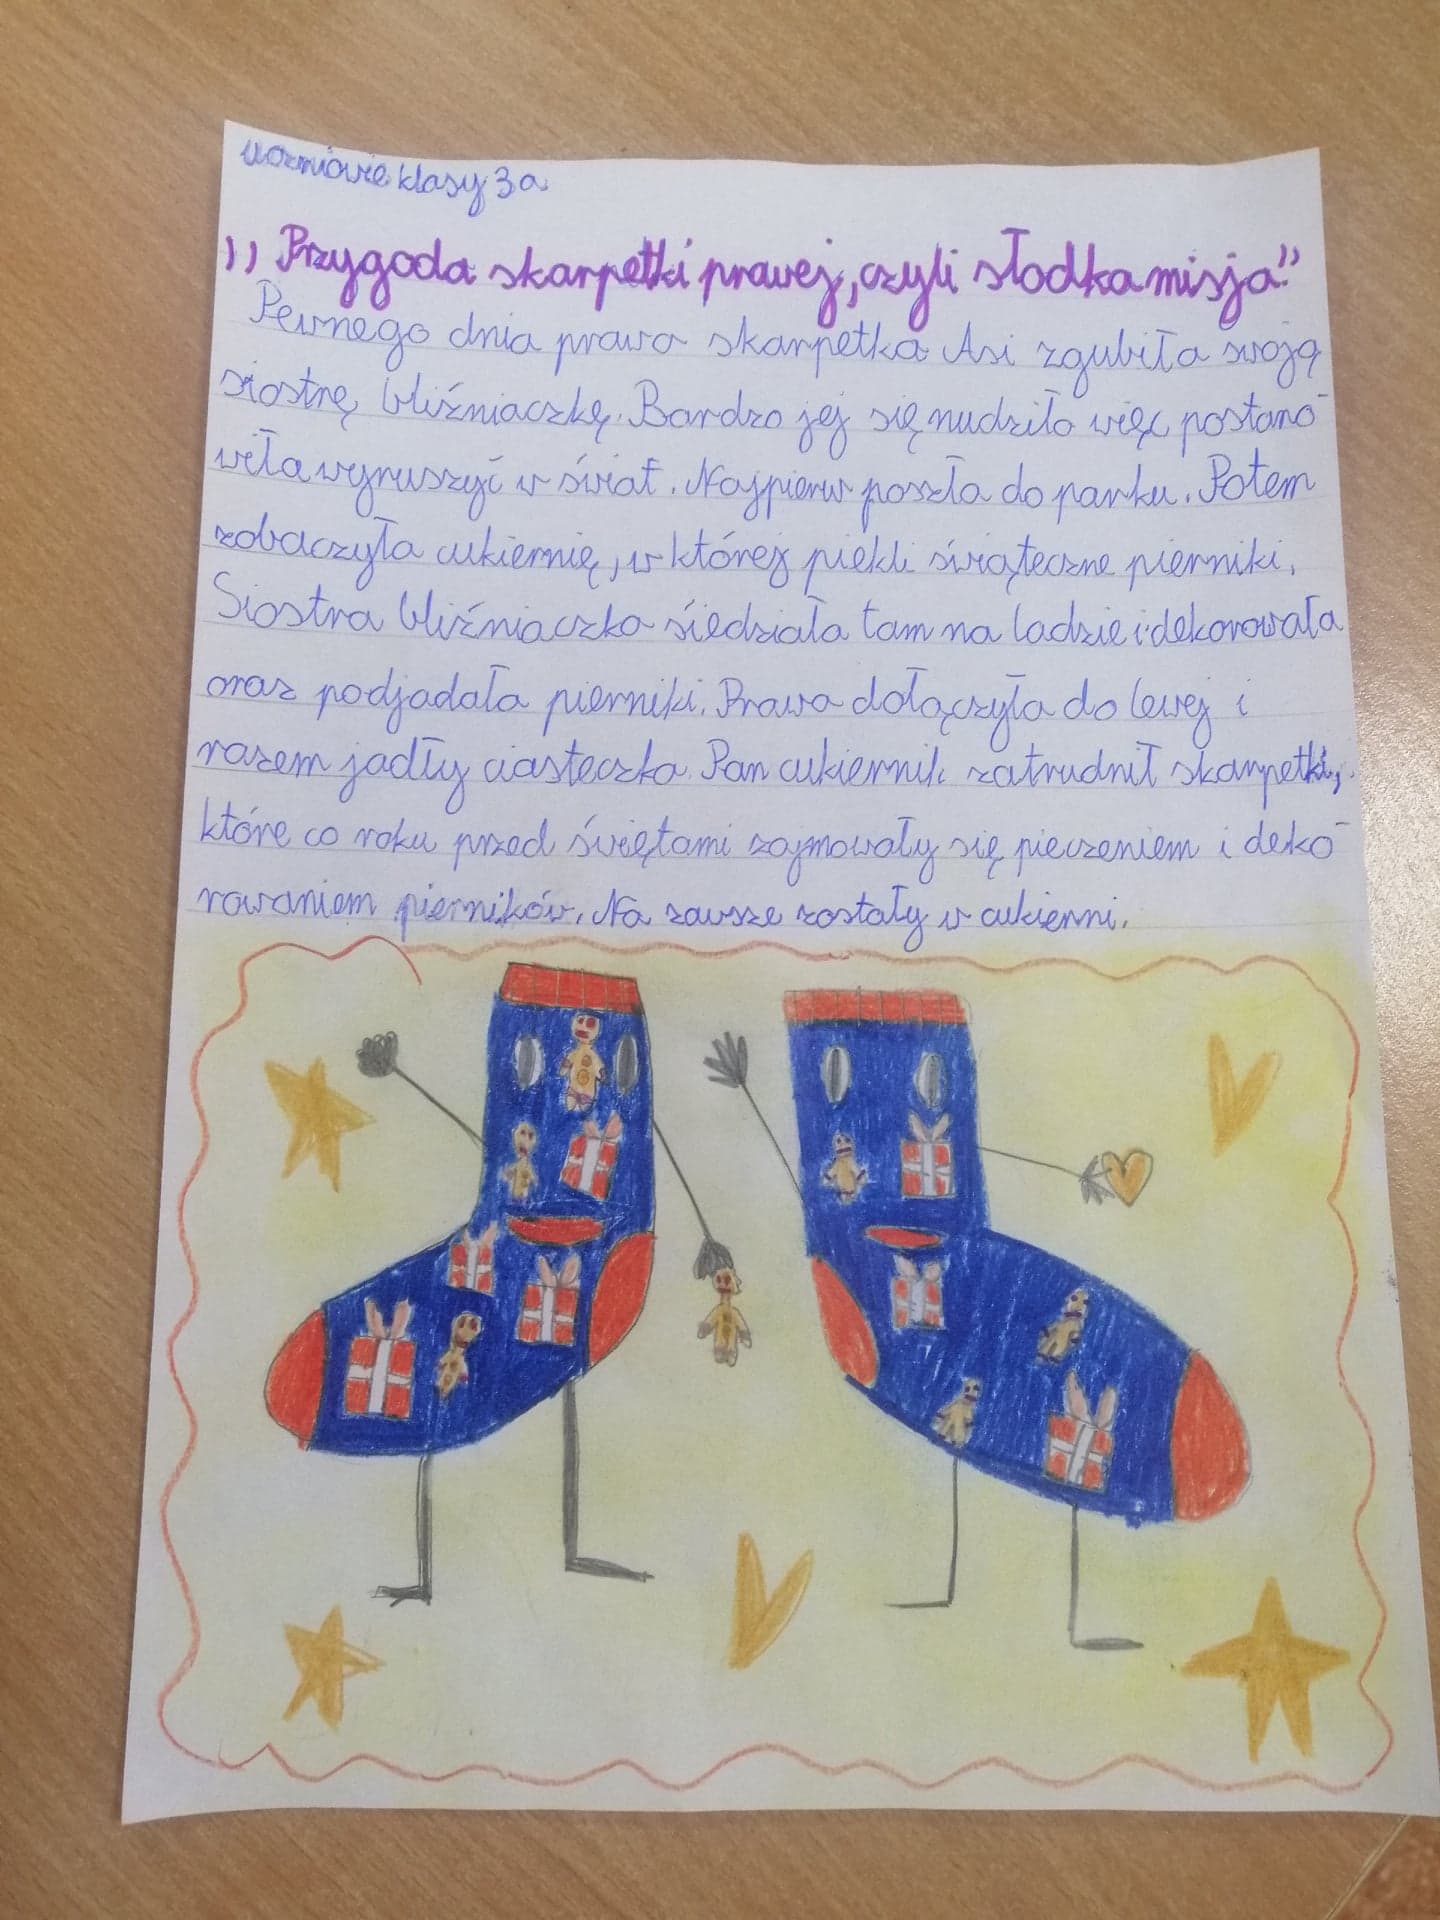 Uczniowie klasy 3a
,,Przygoda skarpetki prawej, czyli słodka misja"
Pewnego dnia prawa skarpetka Asi zgubiła swoją
siostrę bliźniaczkę. Bardzo jej się nudziło więc postano-
wiła wyruszyć w świat. Najpierw poszła do parku. Potem
zobaczyła cukiernię, w której piekli świąteczne pierniki.
Siostra bliźniaczka siedziała tam na ladzie i dekorowała
oraz podjadała pierniki. Prawa dołączyła do lewej i
razem jadły ciasteczka. Pan cukiernik zatrudnił skarpetki,
które co roku przed świętami zajmowały się pieczeniem i deko-
rowaniem pierników. Na zawsze zostały w cukierni.